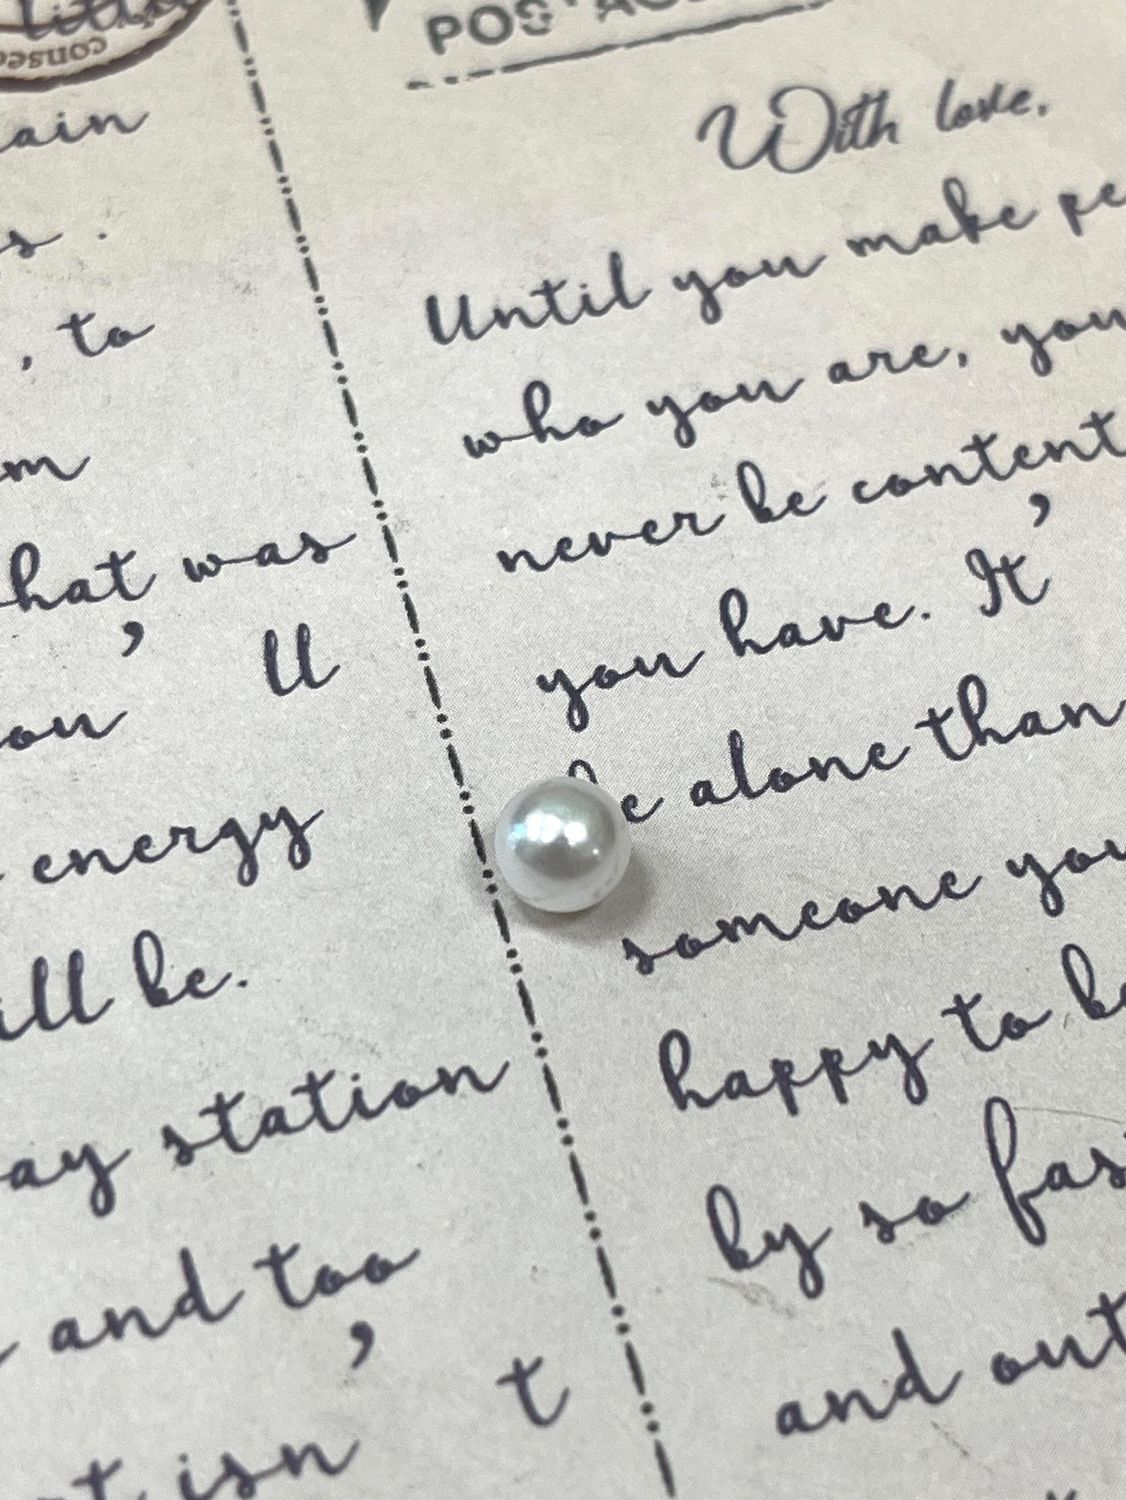 conseq
POSTAGE
ain
s .
, to
m
hat was
ou ' ll
energy
ill be.
ay station
and too
t isn ' t
With love,
Until you make pe
who you are, you
never be content
you have. It '
be alone than
someone you
happy to be
by so fas
and out